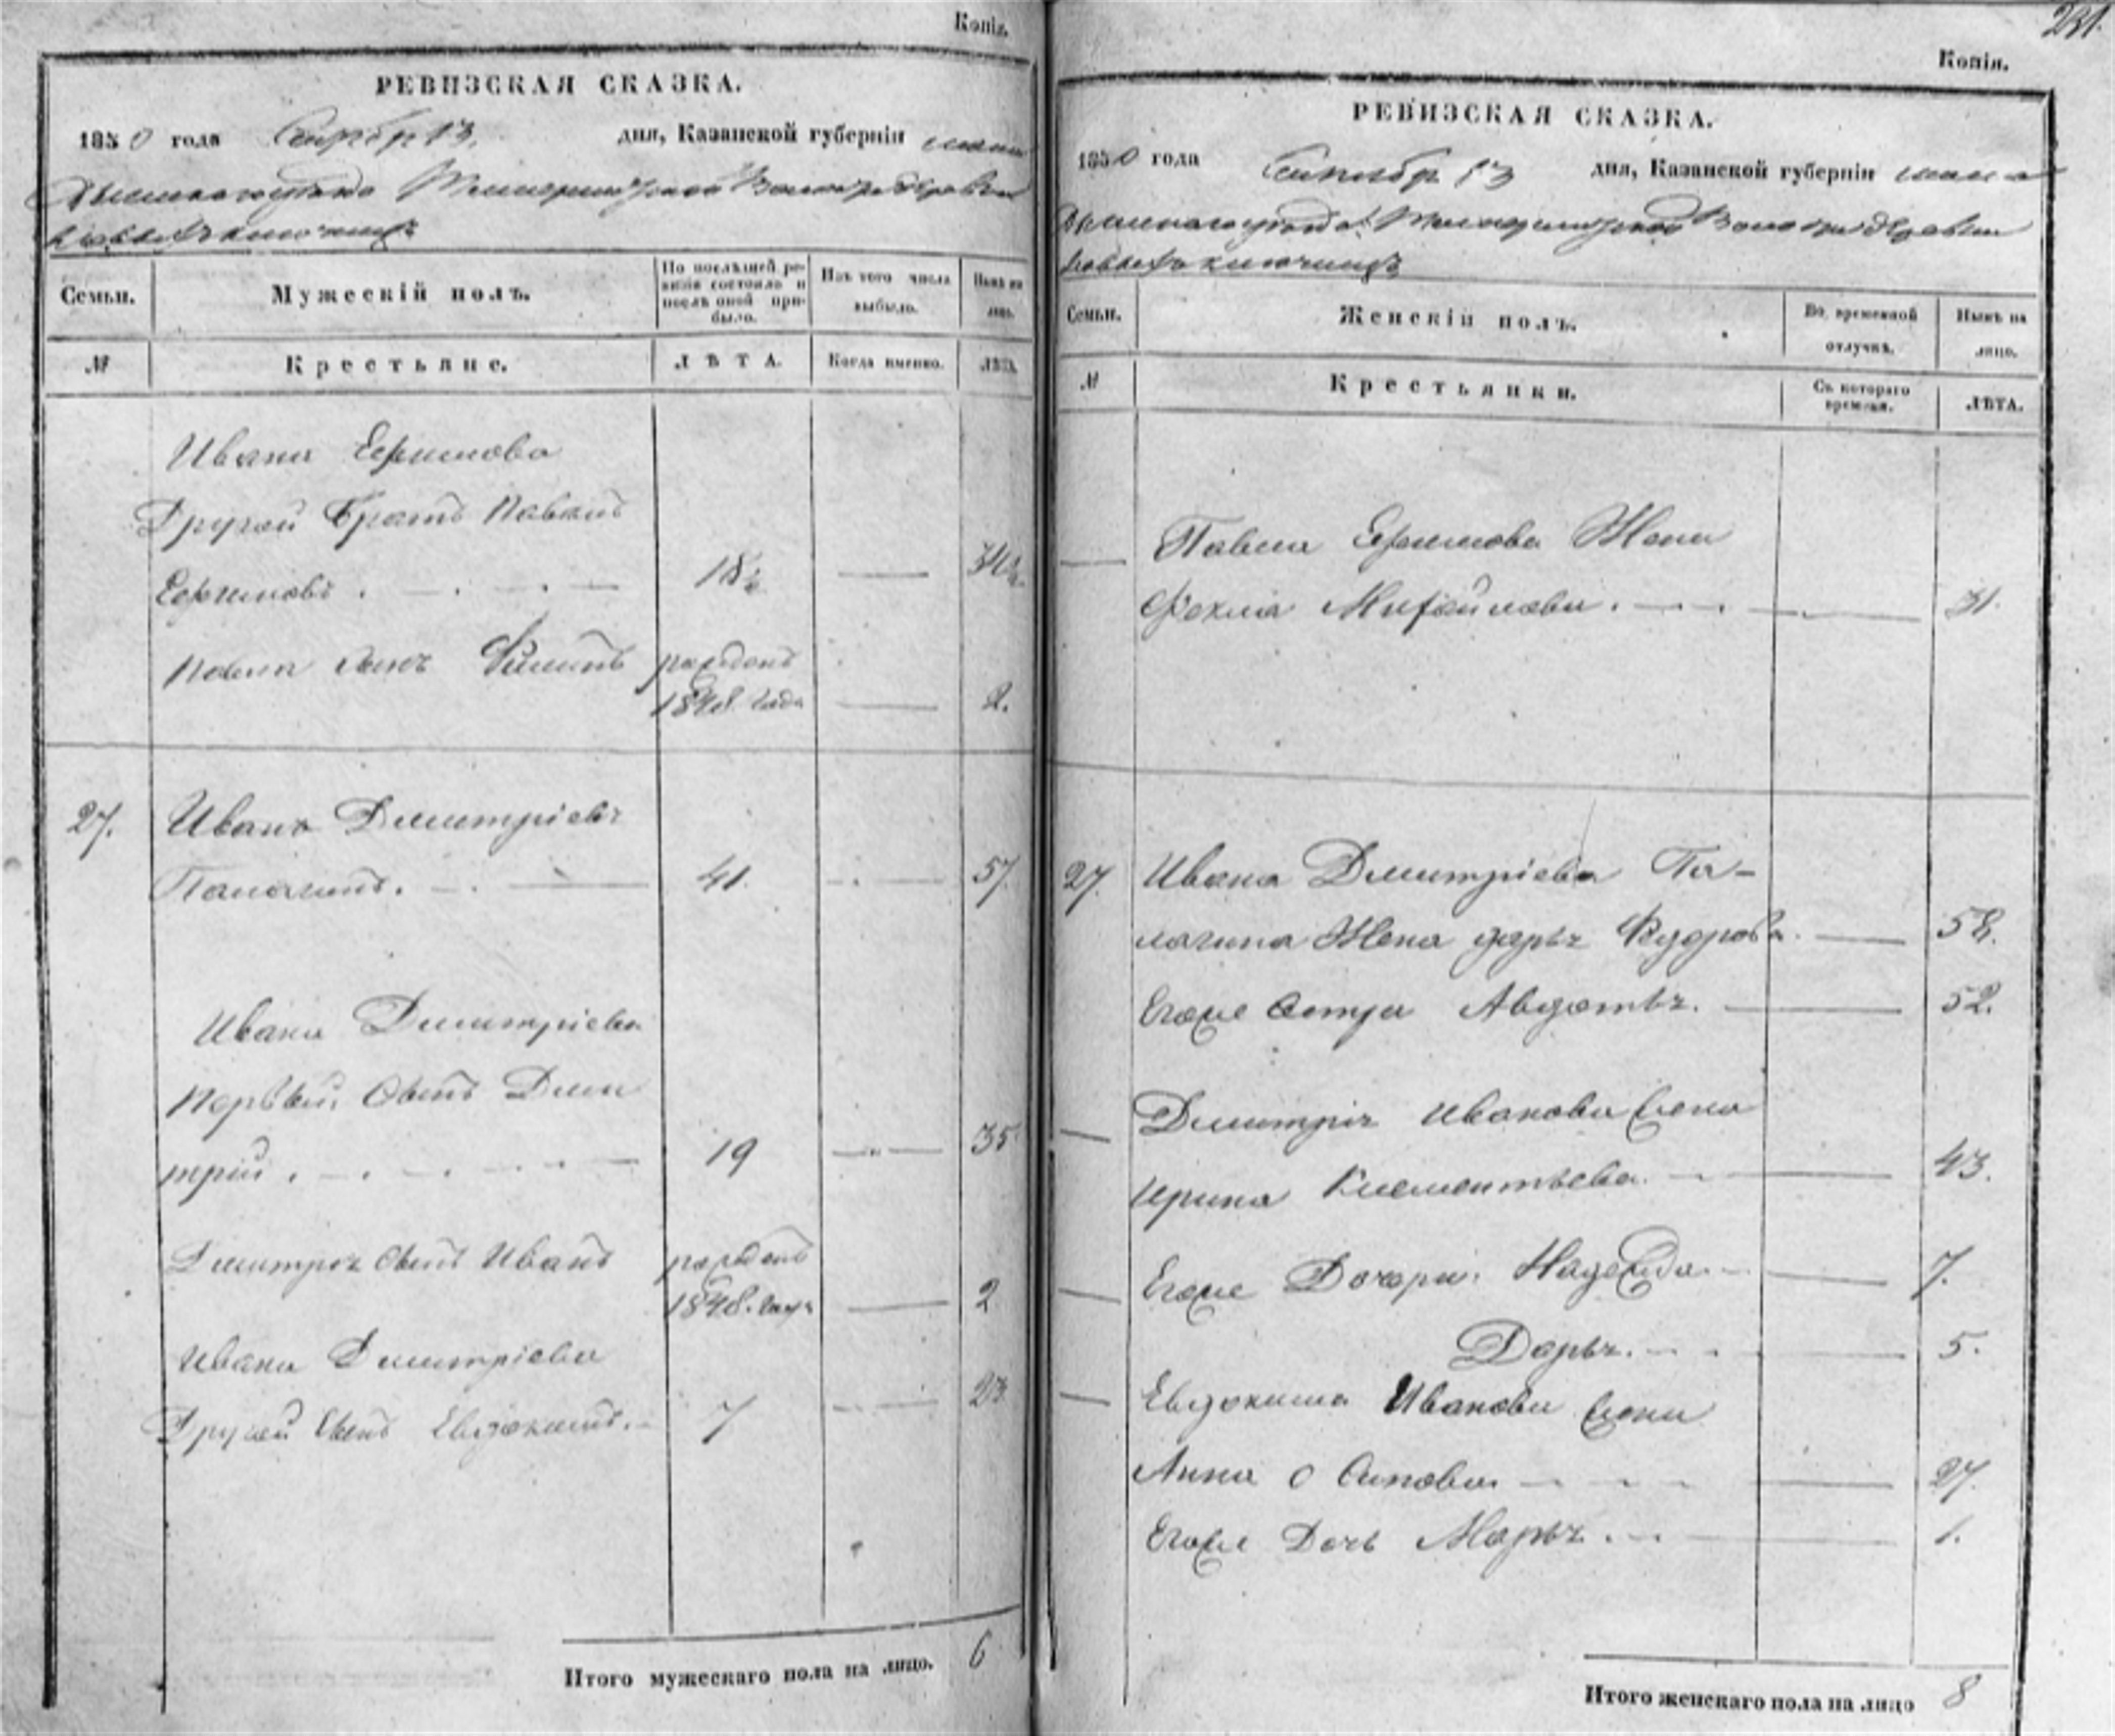 Копія.
РЕВИЗСКАЯ СКАЗКА.
1850 года Сентябр 13. дня, Казанской губерніи
Волости деревни
ключищь
Семьи. Мужескій полъ. По послѣдней ревизіи состояло и послѣ оной прибыло. Изъ того числа выбыло. Нынѣ на лицо.
№ Крестьяне. ЛѢТА. Когда именно. ЛѢТА.
Ивана Ефимова
Другой Братъ Павелъ
Ефимовъ . 18½ 34½.
Павла Сынъ Филипъ рожденъ
1848 года 2.
27. Иванъ Димитріевъ
Палагинъ. 41. 57.
Ивана Димитріева
Первый Сынъ Дми
трій . 19 35
Дмитрія Сынъ Иванъ рожденъ
1848. года 2
Ивана Димитріева
Другой Сынъ Евдокимъ. 7 23
Итого мужескаго пола на лицо. 6
231.
Копія.
РЕВИЗСКАЯ СКАЗКА.
1850 года Сентябр 13 дня, Казанской губерніи
Волости деревни
ключищь
Семьи. Женскій полъ. Во временной отлучкѣ. Нынѣ на лицо.
№ Крестьянки. Съ котораго времени. ЛѢТА.
Павла Ефимова Жена
Фекла Михайлова. 31.
27. Ивана Дмитріева Па-
лагина Жена дарья Федорова. 58.
Егоже Сестра Авдотья. 52.
Димитрія Иванова Жена
Ирина Клементьева. 43.
Егоже Дочери. Надежда. 7.
Дарья. 5.
Евдокима Иванова Жена
Анна Осипова. 27.
Егоже Дочь Марья. 1.
Итого женскаго пола на лицо 8